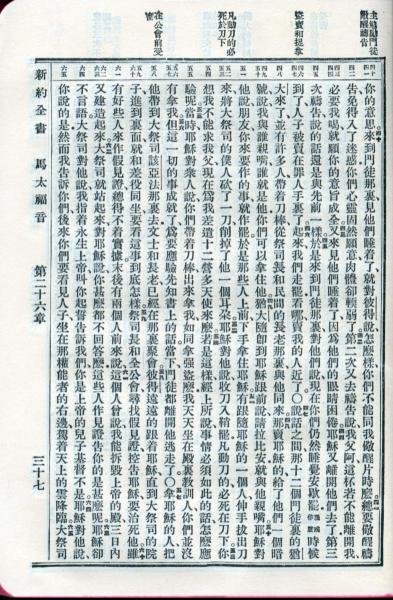 儆醒禱告
盜賣和捉拿
凡動刀的必
死於刀下
在公會前受
審
你的意思來到門徒那裏見他們睡着了就對彼得說怎麼樣你們不能同我儆醒片時麼總要儆醒禱
告免得入了迷惑你們心靈固然願意肉體卻輭弱了第二次又去禱告說我父阿這杯若不能離開我
必要我喝就願你的意旨成全又來見他們睡着了因爲他們的眼睛困倦耶穌又離開他們去了第三
次禱告說的話還是與先前一樣於是來到門徒那裏對他們說現在你們仍然睡覺安歇罷時候
到了人子被賣在罪人手裏了起來我們走罷看哪賣我的人近了○說話之間那十二個門徒裏的猶
大來了並有許多人帶着刀棒從祭司長和民間的長老那裏與他同來那賣耶穌的給了他們一個暗
號說我與誰親嘴誰就是他你們可以拿住他猶大隨卽到耶穌跟前說請拉比安就與他親嘴耶穌對
他說朋友你來要作的事就作罷於是那些人上前下手拿住耶穌有跟隨耶穌的一個人伸手拔出刀
來將大祭司的僕人砍了一刀削掉了他一個耳朵耶穌對他說收刀入鞘罷凡動刀的必死在刀下你
想我不能求我父現在爲我差遣十二營多天使來麼若是這樣經上所說事情必須如此的話怎麼應
驗呢當時耶穌對衆人說你們帶着刀棒出來拿我如同拿強盜麼我天天坐在殿裏教訓人你們並沒
有拿我但這一切的事成就了爲要應驗先知書上的話當下門徒都離開他逃走了○拿耶穌的人把
他帶到大祭司該亞法那裏去文士和長老已經在那裏聚會彼得遠遠的跟着耶穌直到大祭司的院
子進到裏面就和差役同坐要看這事到底怎樣祭司長和全公會尋找假見證控告耶穌要治死他雖
有好些人來作假見證總得不着實據末後有兩個人前來說這個人曾說我能拆毀上帝的殿三日內
又建造起來大祭司就站起來對耶穌說你甚麼都不回答麼這些人作見證告你的是甚麼呢耶穌卻
不言語大祭司對他說我指着永生上帝叫你起誓告訴我們你是上帝的兒子基督不是耶穌對他說
你說的是然而我告訴你們後來你們要看見人子坐在那權能者的右邊駕着天上的雲降臨大祭司
新約全書 馬太福音 第二十六章 三十七